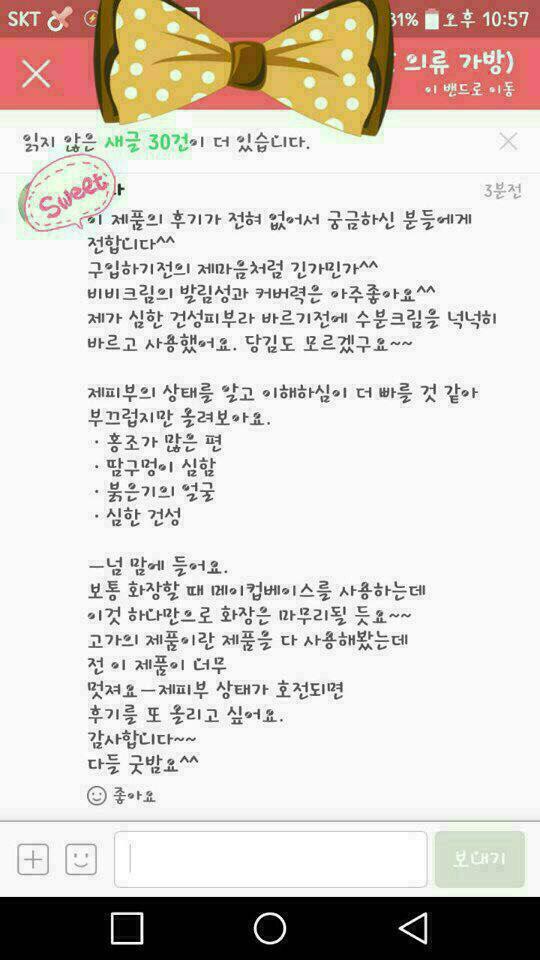 SKT 81% 오후 10:57
의류 가방)
이 밴드로 이동
읽지 않은 새글 30건이 더 있습니다.
Sweet
3분전
이 제품의 후기가 전혀 없어서 궁금하신 분들에게
전합니다^^
구입하기전의 제마음처럼 긴가민가^^
비비크림의 발림성과 커버력은 아주좋아요^^
제가 심한 건성피부라 바르기전에 수분크림을 넉넉히
바르고 사용했어요. 당김도 모르겠구요~~
제피부의 상태를 알고 이해하심이 더 빠를 것 같아
부끄럽지만 올려보아요.
· 홍조가 많은 편
· 땀구멍이 심함
· 붉은기의 얼굴
· 심한 건성
ㅡ넘 맘에 들어요.
보통 화장할 때 메이컵베이스를 사용하는데
이것 하나만으로 화장은 마무리될 듯요~~
고가의 제품이란 제품을 다 사용해봤는데
전 이 제품이 너무
멋져요ㅡ제피부 상태가 호전되면
후기를 또 올리고 싶어요.
감사합니다~~
다들 굿밤요^^
좋아요
보내기